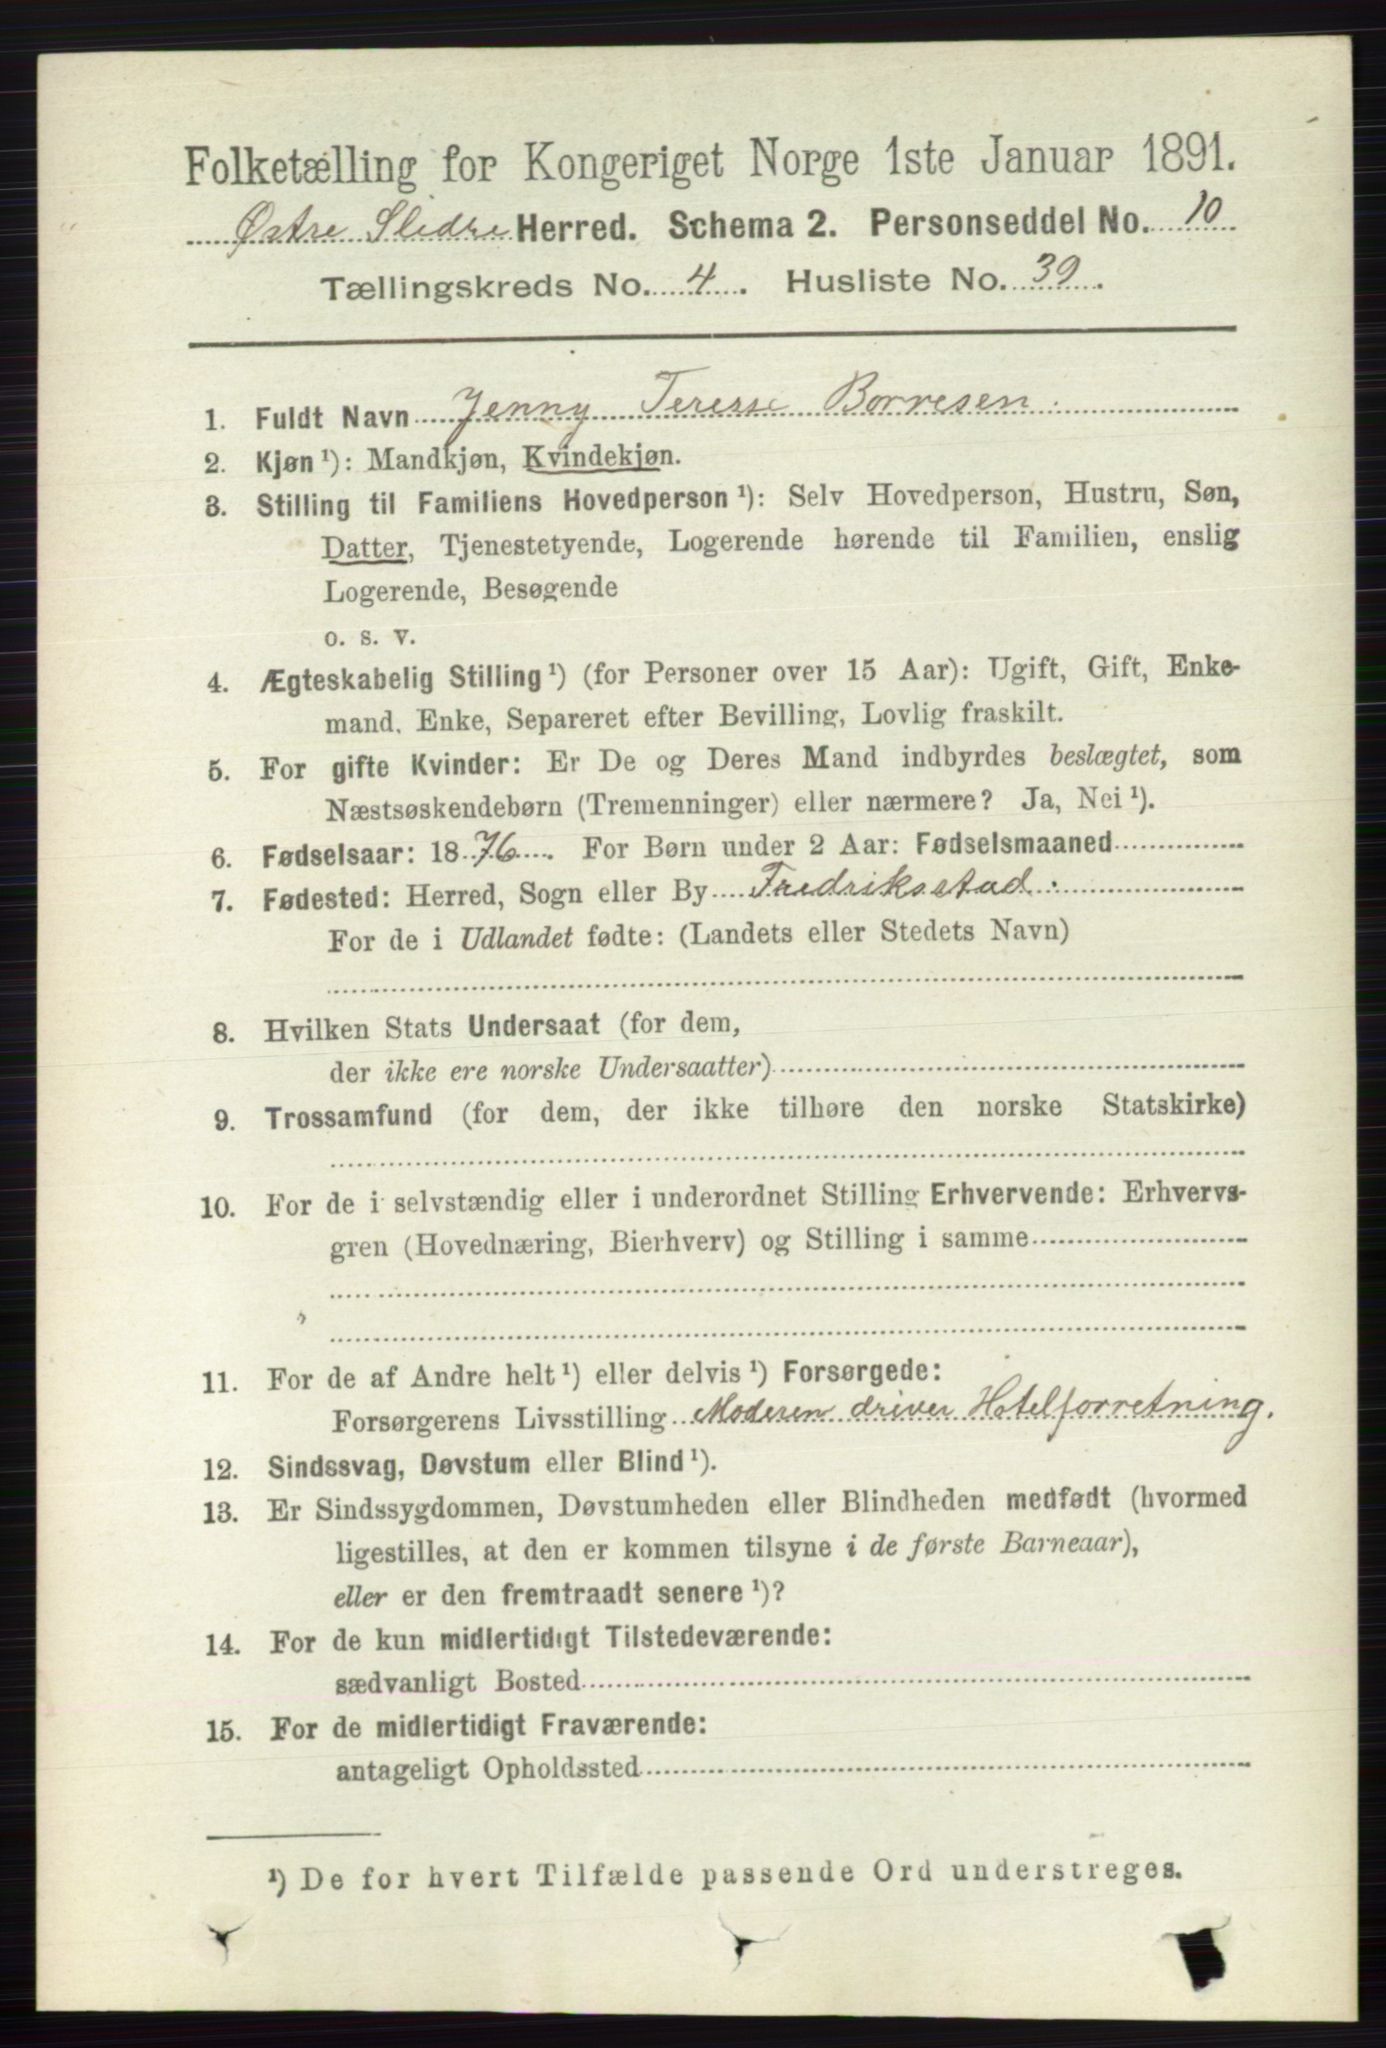 Folketælling for Kongeriget Norge 1ste Januar 1891.
Østre Slidre Herred. Schema 2. Personseddel No. 10
Tællingskreds No. 4. Husliste No. 39.
1. Fuldt Navn Jenny Terese Borresen
2. Kjøn ¹): Mandkjøn, Kvindekjøn.
3. Stilling til Familiens Hovedperson ¹): Selv Hovedperson, Hustru, Søn,
Datter, Tjenestetyende, Logerende hørende til Familien, enslig
Logerende, Besøgende
o. s. v.
4. Ægteskabelig Stilling ¹) (for Personer over 15 Aar): Ugift, Gift, Enke-
mand, Enke, Separeret efter Bevilling, Lovlig fraskilt.
5. For gifte Kvinder: Er De og Deres Mand indbyrdes beslægtet, som
Næstsøskendebørn (Tremenninger) eller nærmere? Ja, Nei ¹).
6. Fødselsaar: 1876. For Børn under 2 Aar: Fødselsmaaned
7. Fødested: Herred, Sogn eller By Fredriksstad.
For de i Udlandet fødte: (Landets eller Stedets Navn)
8. Hvilken Stats Undersaat (for dem,
der ikke ere norske Undersaatter)
9. Trossamfund (for dem, der ikke tilhøre den norske Statskirke)
10. For de i selvstændig eller i underordnet Stilling Erhvervende: Erhvervs-
gren (Hovednæring, Bierhverv) og Stilling i samme
11. For de af Andre helt ¹) eller delvis ¹) Forsørgede:
Forsørgerens Livsstilling Moderen driver Hotelforretning.
12. Sindssvag, Døvstum eller Blind ¹).
13. Er Sindssygdommen, Døvstumheden eller Blindheden medfødt (hvormed
ligestilles, at den er kommen tilsyne i de første Barneaar),
eller er den fremtraadt senere ¹)?
14. For de kun midlertidigt Tilstedeværende:
sædvanligt Bosted
15. For de midlertidigt Fraværende:
antageligt Opholdssted
¹) De for hvert Tilfælde passende Ord understreges.